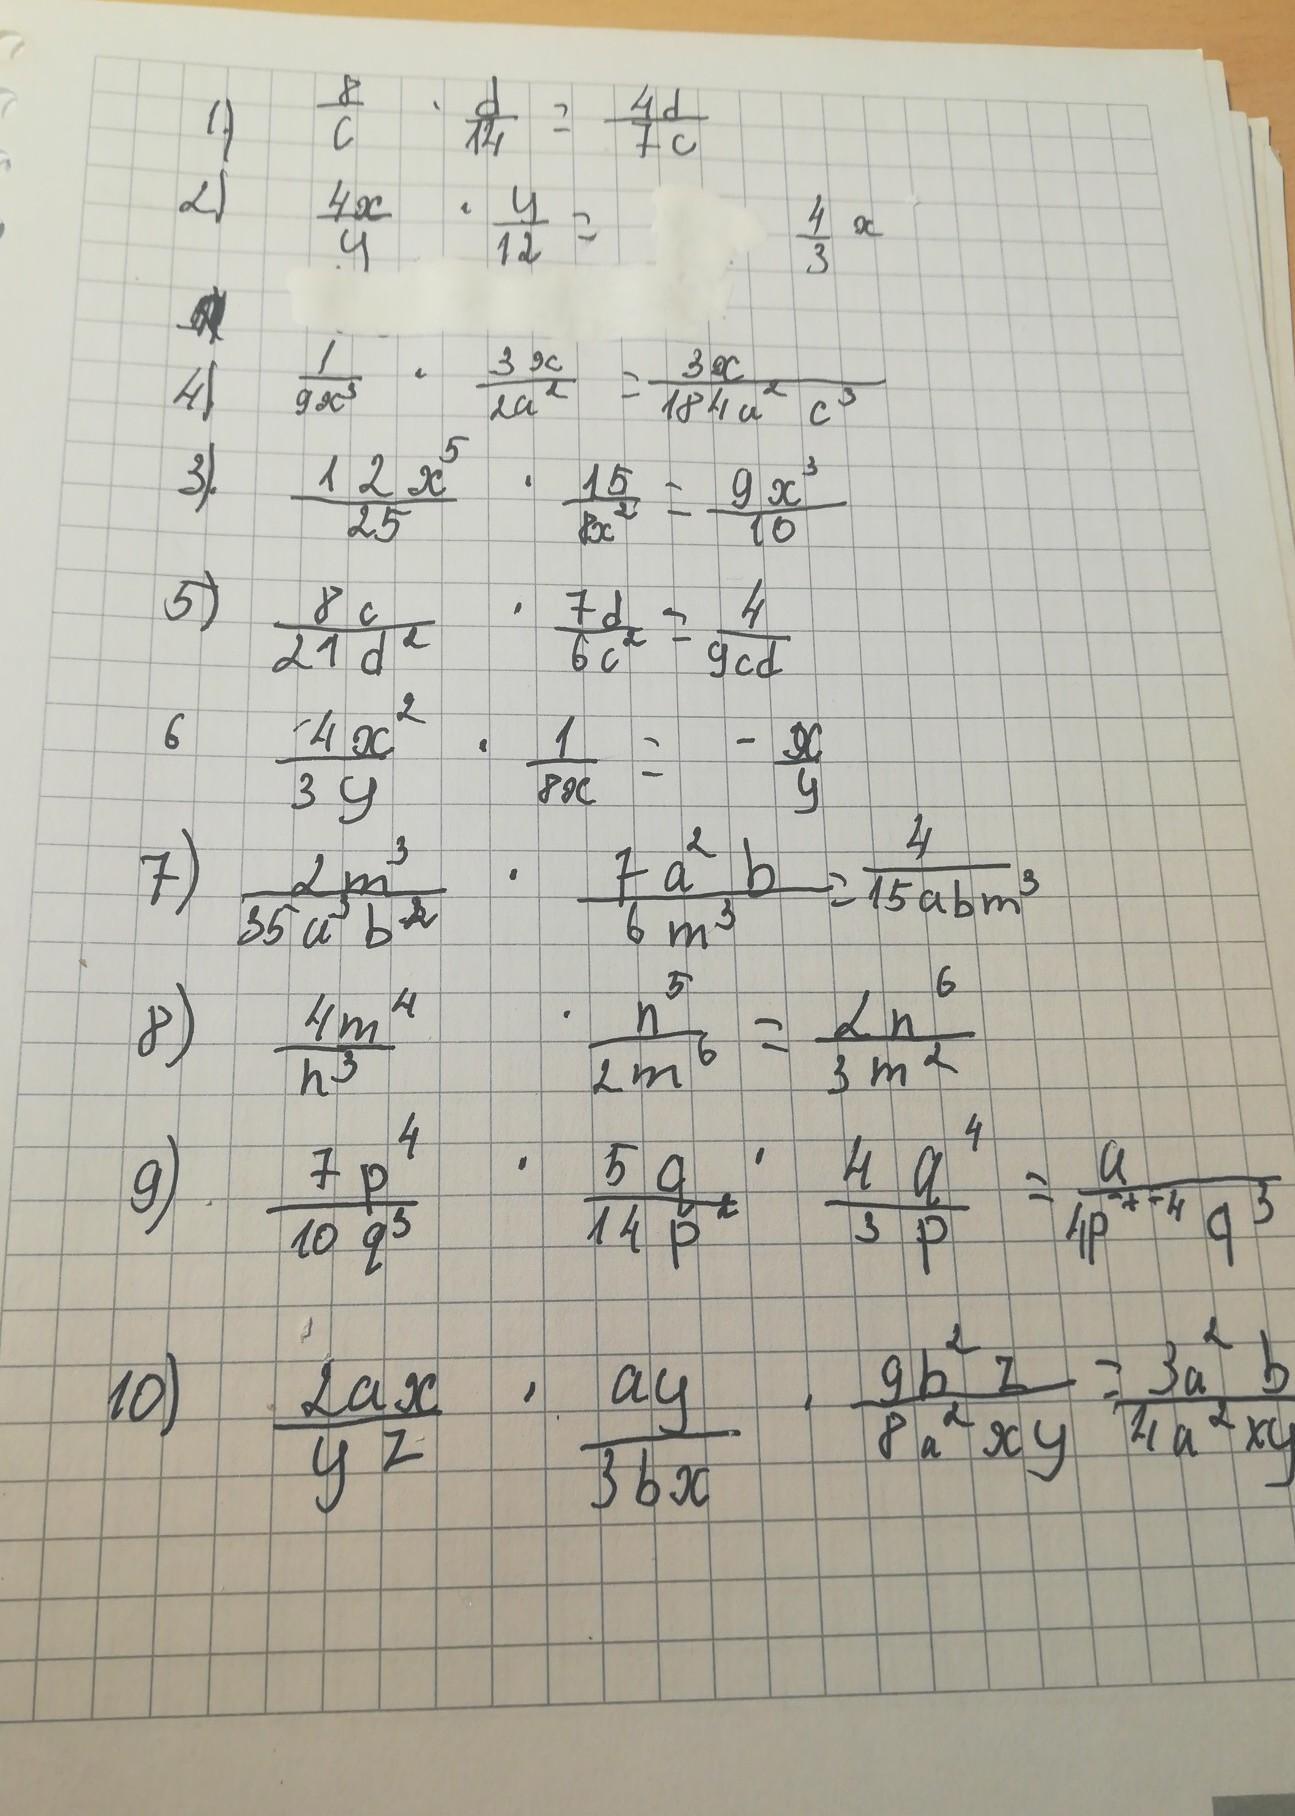 1) 8/c · d/14 = 4d/7c
2) 4x/y · y/12 = 4/3 x
4) 1/9x³ · 3x/2a² = 3x/184a² c³
3) 12x⁵/25 · 15/8x² = 9x³/10
5) 8c/21d² · 7d/6c² = 4/9cd
6 -4x²/3y · 1/8x = - x/y
7) 2m³/35a³b² · 7a²b/6m³ = 4/15abm³
8) 4m⁴/n³ · n⁵/2m⁶ = 2n⁶/3m²
9) 7p⁴/10q³ · 5q/14p² · 4q⁴/3p = a/4p q³
10) 2ax/yz · ay/3bx · 9b²z/8a²xy = 3a²b/4a²xy